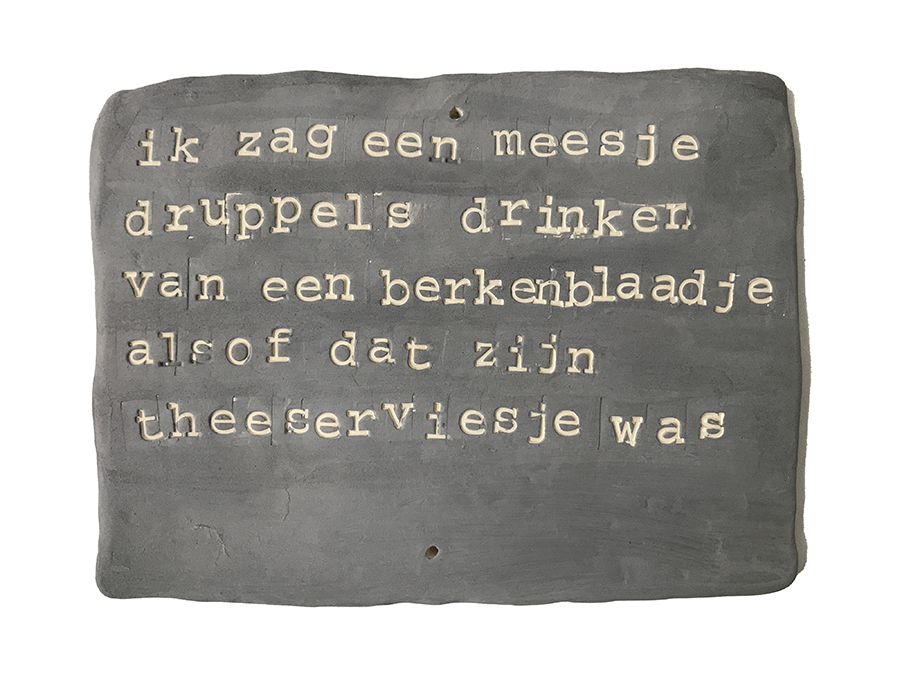 ik zag een meesje
druppels drinken
van een berkenblaadje
alsof dat zijn
theeserviesje was